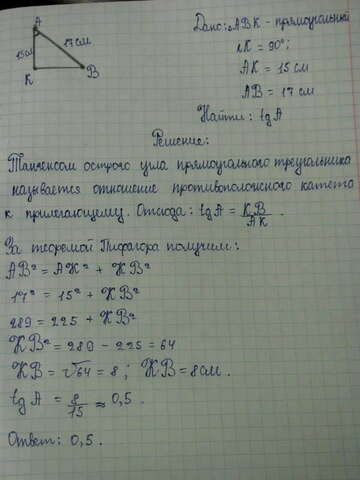 A
15 см
17 см
K
B
Дано: ABK - прямоугольный
∠K = 90°;
AK = 15 см
AB = 17 см
Найти: tg A
Решение:
Тангенсом острого угла прямоугольного треугольника
называется отношение противоположного катета
к прилегающему. Отсюда: tg A = KB/AK.
За теоремой Пифагора получим:
AB² = AK² + KB²
17² = 15² + KB²
289 = 225 + KB²
KB² = 289 - 225 = 64
KB = √64 = 8; KB = 8 см.
tg A = 8/15 ≈ 0,5.
Ответ: 0,5.